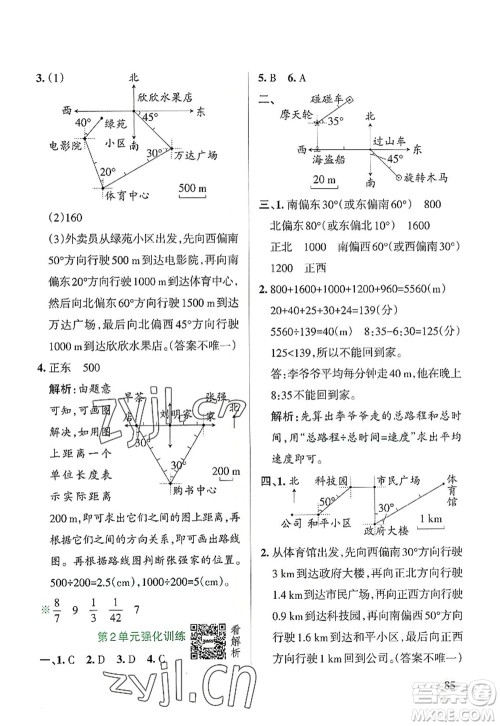 3. (1)
北
欣欣水果店
西
东
绿苑
小区
40°
45°
电影院
南
30°
万达广场
20°
体育中心
500 m
(2)160
(3)外卖员从绿苑小区出发,先向西偏南
50°方向行驶500 m到达电影院,向南
偏东20°方向行驶1000 m到达体育中心,
然后向北偏东60°方向行驶1000 m到达
万达广场,最后向北偏西45°方向行驶
1000 m到达欣欣水果店。(答案不唯一)
4. 正东 500
解析:由题意
可知,可画图
解决,如右图
所示,图中的1
单位长度表示
200 m,即可求出它们之间的图上距离,
再根据路线图判断张强家的位置。
500÷200=2.5(cm)
早茶店
张强家
刘明家
北
30°
30°
购书中心
200 m
※ 8/7 9 1/3 1/42
第2单元强化训练
看解析
一、1. C 2. D 3. C 4. C
5. B 6. A
二、
碰碰车
北
摩天轮
35°
过山车
西
东
45°
海盗船
南
20 m
旋转木马
三、1. 南偏东30°(或东偏南60°) 1000
北偏东80°(或东偏北10°) 1600
正北 1000 南偏西60°(或西偏南
30°) 1200 正西
2. 800+1600+1000+1200+960=5560(m)
20+40+25+30+24=139(分)
5560÷139=40(米/分) 8:35-6:00=155(分)
答:李爷爷平均每分钟走40 m,他晚上
8:35前能到家。(答案不唯一)
解析:先算出李爷爷走的总路程和总时
间,用"总路程÷总时间=速度"求出平均
速度即可。
四、1.
北
科技园
市民广场
体育馆
50°
30°
30°
公司
和平小区
政府大楼
1 km
2. 从体育馆出发,向西偏南30°方向行驶
3 km到达政府大楼,向北偏西30°方向行驶
1.4 km到达市民广场,向正西方向行驶
0.9 km到达科技园,向西偏南50°方向行驶
1.8 km到达和平小区,向正西方向行驶
1 km到达公司。
zyjl.cn
85